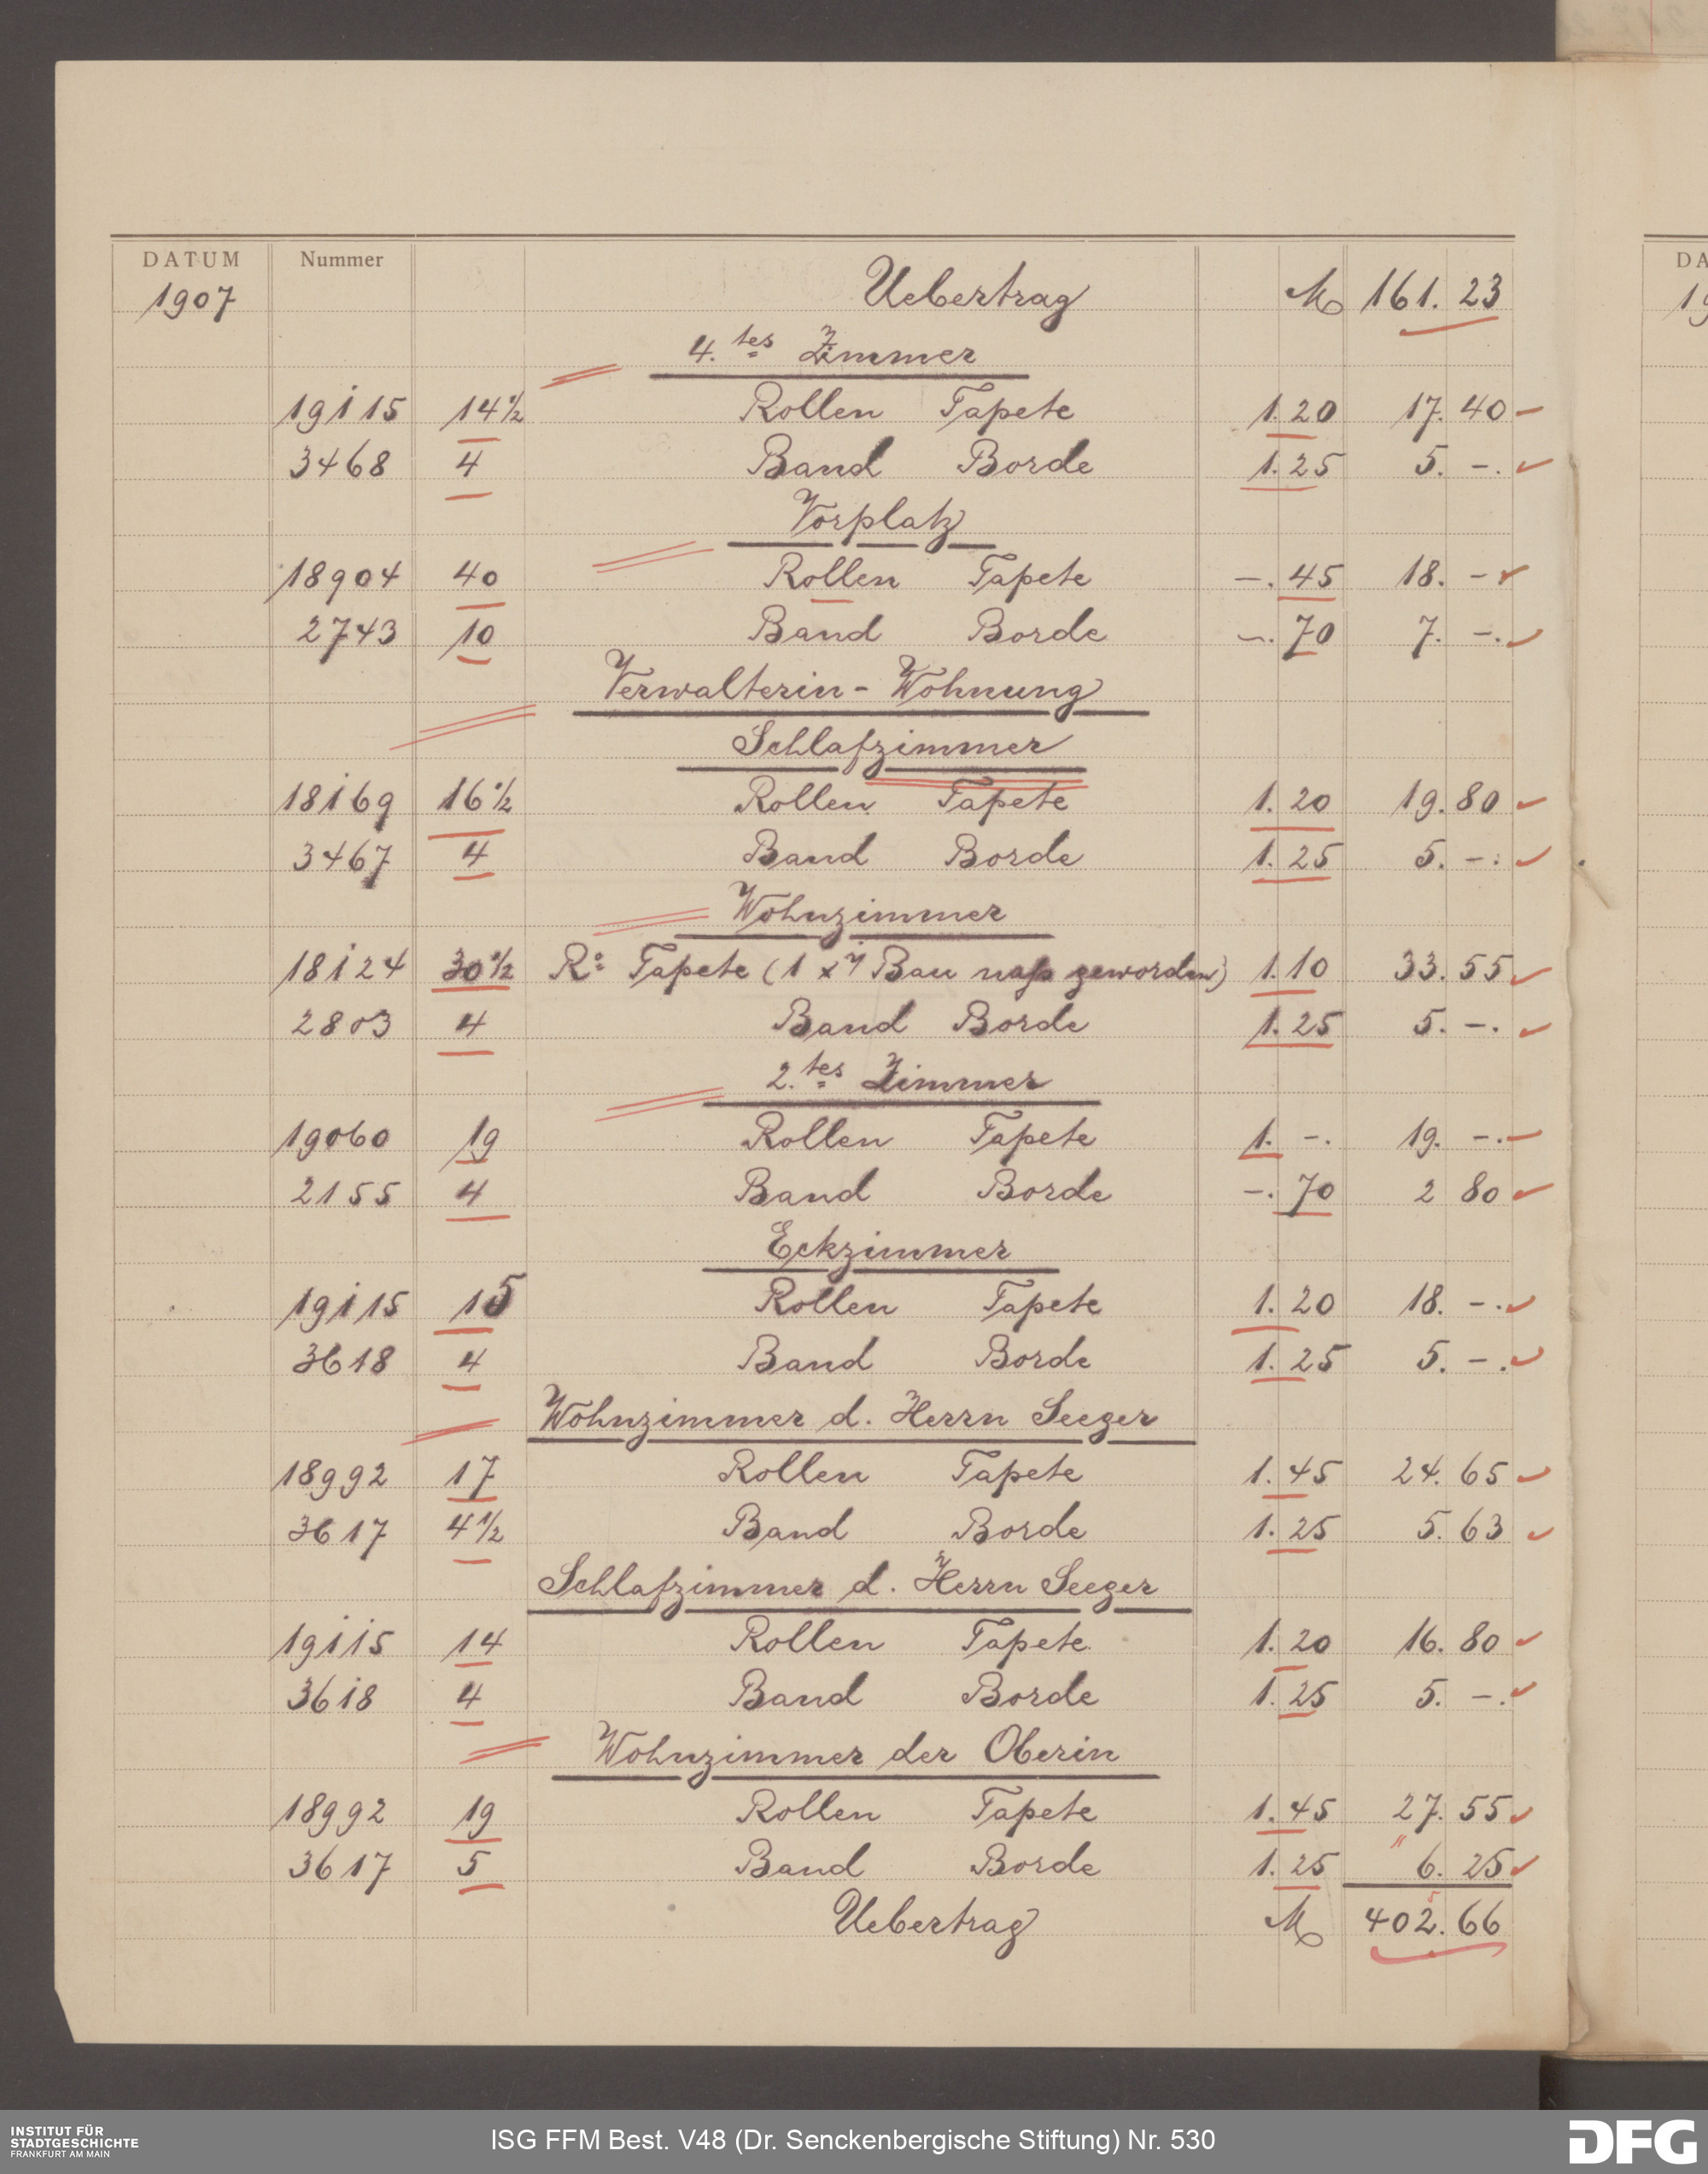 DATUM Nummer
1907 Uebertrag M 161. 23
4. tes Zimmer
19115 14 1/2 Rollen Tapete 1. 20 17. 40
3468 4 Band Borde 1. 25 5. -.
Vorplatz
18904 40 Rollen Tapete -. 45 18. -
2743 10 Band Borde -. 70 7. -.
Verwalterin - Wohnung
Schlafzimmer
18169 16 1/2 Rollen Tapete 1. 20 19. 80
3467 4 Band Borde 1. 25 5. -.
Wohnzimmer
18124 30 1/2 Ro Tapete (1 x Bau naß geworden) 1. 10 33. 55
2803 4 Band Borde 1. 25 5. -.
2. tes Zimmer
19060 19 Rollen Tapete 1. -. 19. -.
2155 4 Band Borde -. 70 2 80
Eckzimmer
19115 15 Rollen Tapete 1. 20 18. -.
3618 4 Band Borde 1. 25 5. -.
Wohnzimmer d. Herrn Seeger
18992 17 Rollen Tapete 1. 45 24. 65
3617 4 1/2 Band Borde 1. 25 5. 63
Schlafzimmer d. Herrn Seeger
19115 14 Rollen Tapete 1. 20 16. 80
3618 4 Band Borde 1. 25 5. -.
Wohnzimmer der Oberin
18992 19 Rollen Tapete 1. 45 27. 55
3617 5 Band Borde 1. 25 6. 25
Uebertrag M 402. 66
DA
19
INSTITUT FÜR
STADTGESCHICHTE
FRANKFURT AM MAIN
ISG FFM Best. V48 (Dr. Senckenbergische Stiftung) Nr. 530
DFG